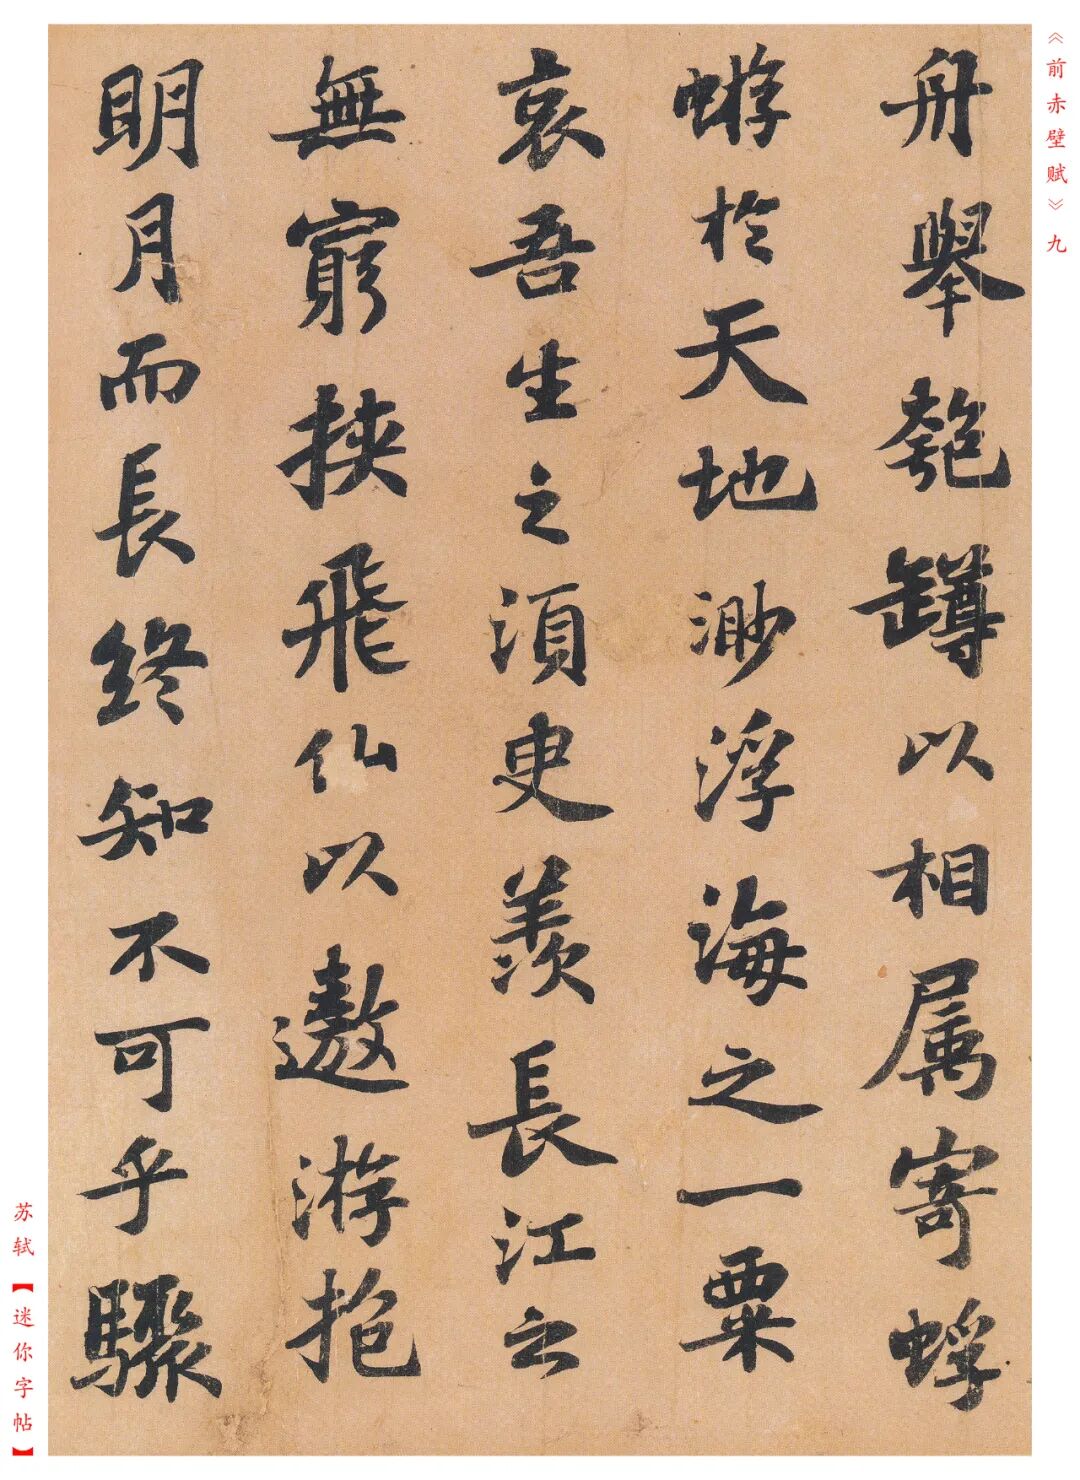 《前赤壁赋》九
舟舉匏罇以相属寄蜉
蝣於天地渺浮海之一粟
哀吾生之須臾羨長江之
無窮挾飛仙以遨游抱
明月而長終知不可乎驟
苏轼【迷你字帖】